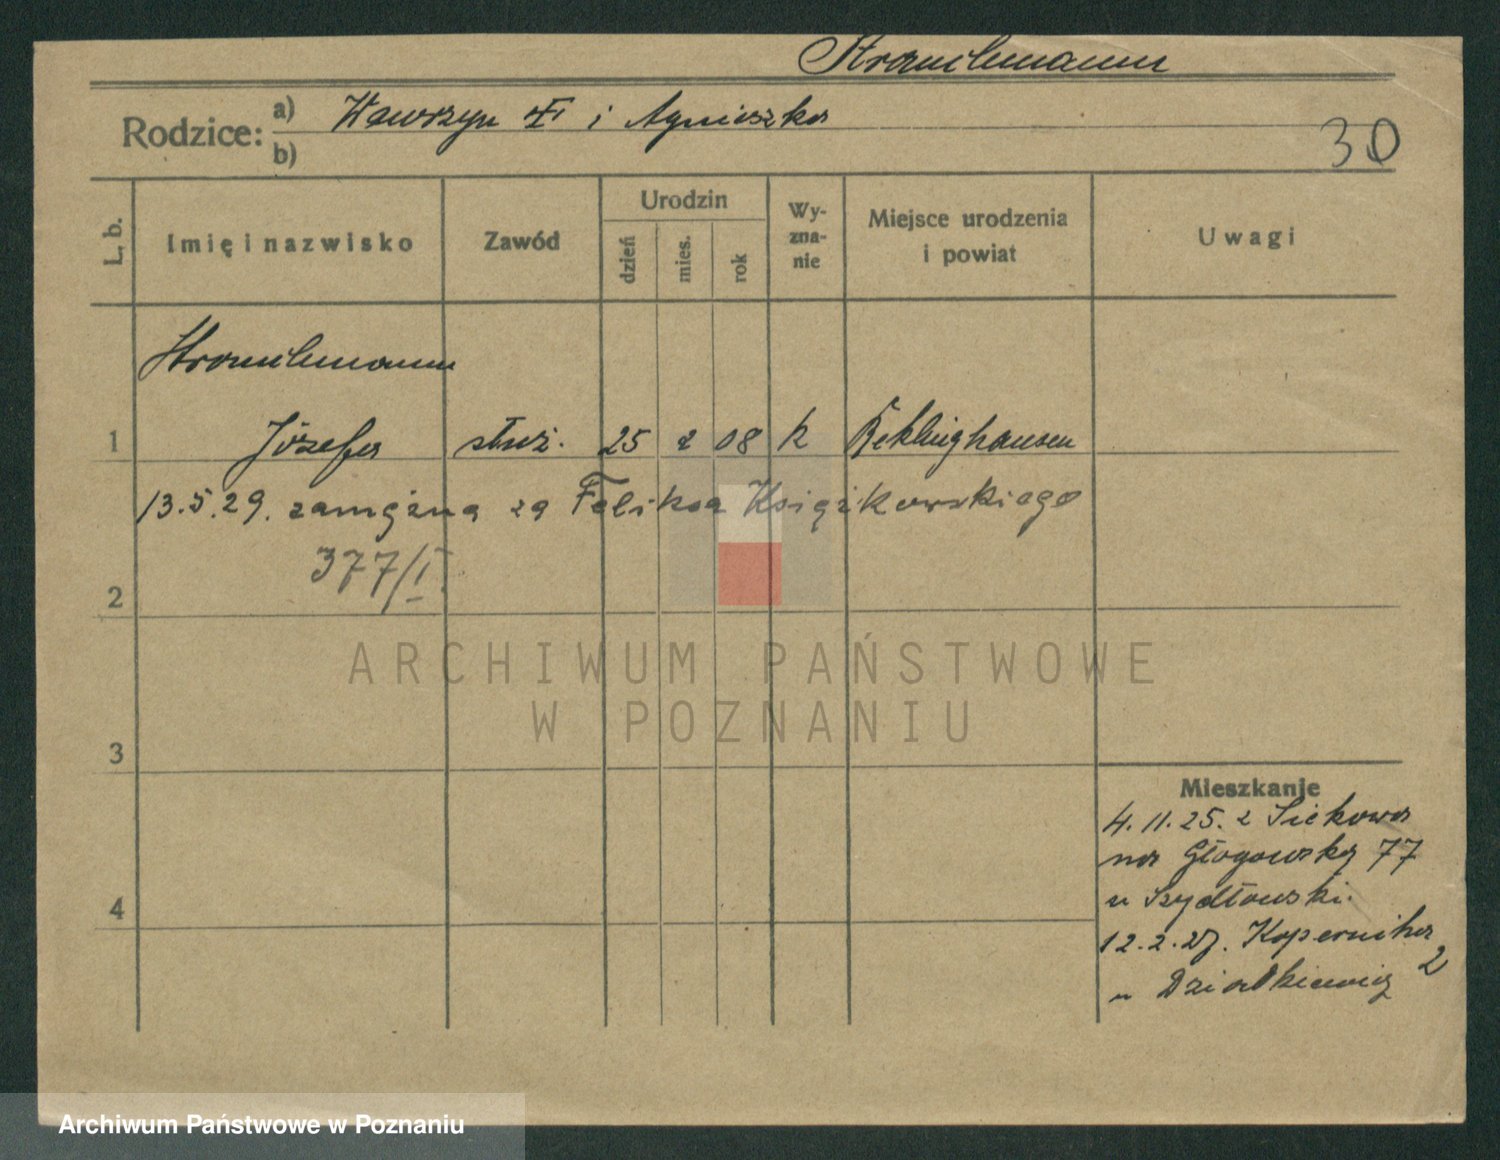 Stranchmann
Rodzice: a) Wawrzyn i Agnieszka
b)
30
L. b.
Imię i nazwisko
Zawód
Urodzin
dzień
mies.
rok
Wyznanie
Miejsce urodzenia i powiat
Uwagi
Stranchmann
1 Józefa służ. 25 2 08 k Reklinghausen
13.5.29. zamężna za Feliksa Książkowskiego
377/I
2
3
4
Mieszkanie
4. 11. 25. z Siekowa
na Głogowską 77
u Szydłowski.
12. 2. 27. Kopernika 2
u Działkiewicz
ARCHIWUM PAŃSTWOWE
W POZNANIU
Archiwum Państwowe w Poznaniu